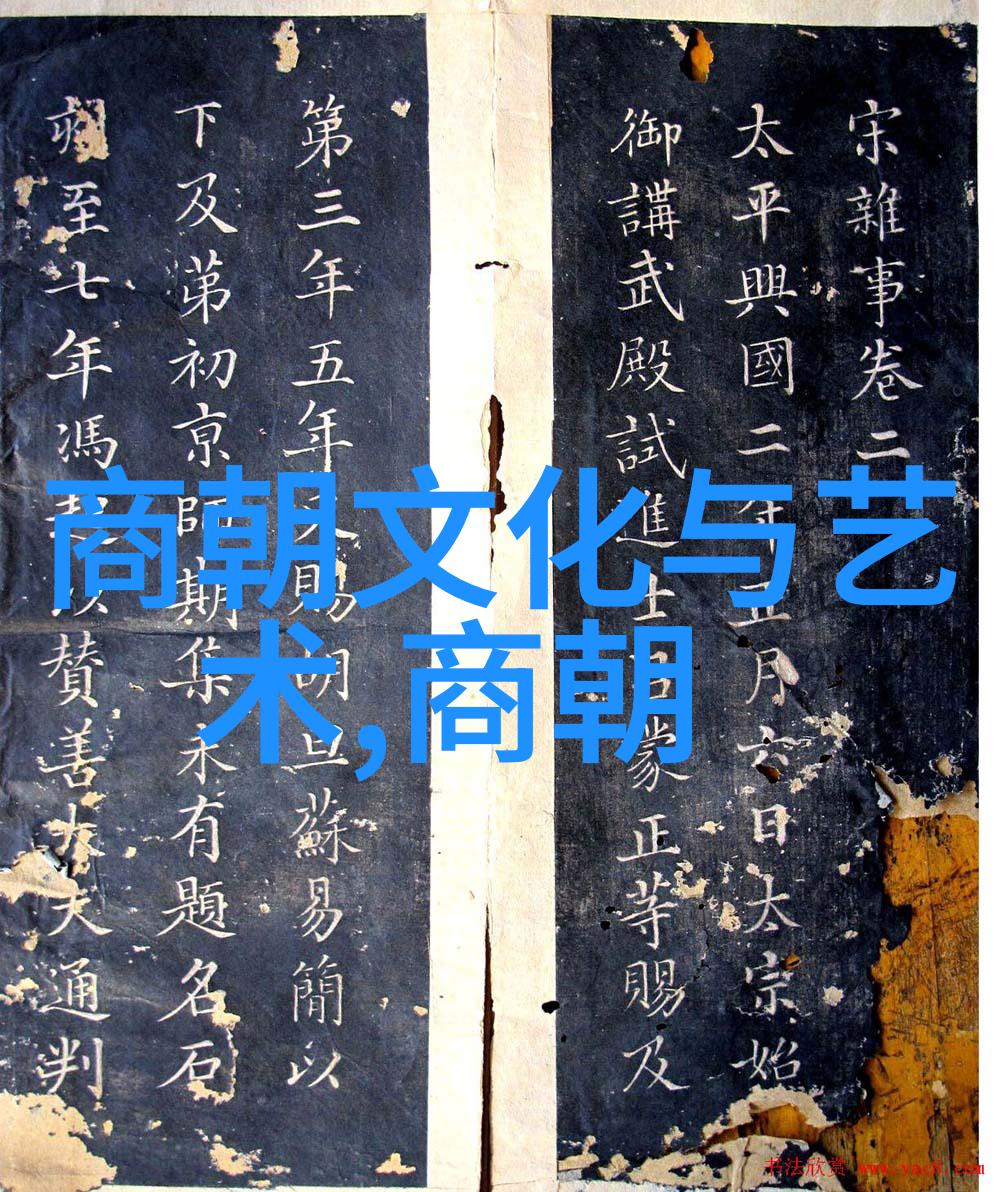 宋雜事卷二
太平興國二年月六日太宗始
御講武殿試進士呂蒙正等賜及
第三年五年賜胡旦蘇易簡以
下及苐初京師期集未有題名石
刻至七年馮起以贊善大夫通判
商朝文化与艺
术,商朝
书法欣赏 www.yac8.com